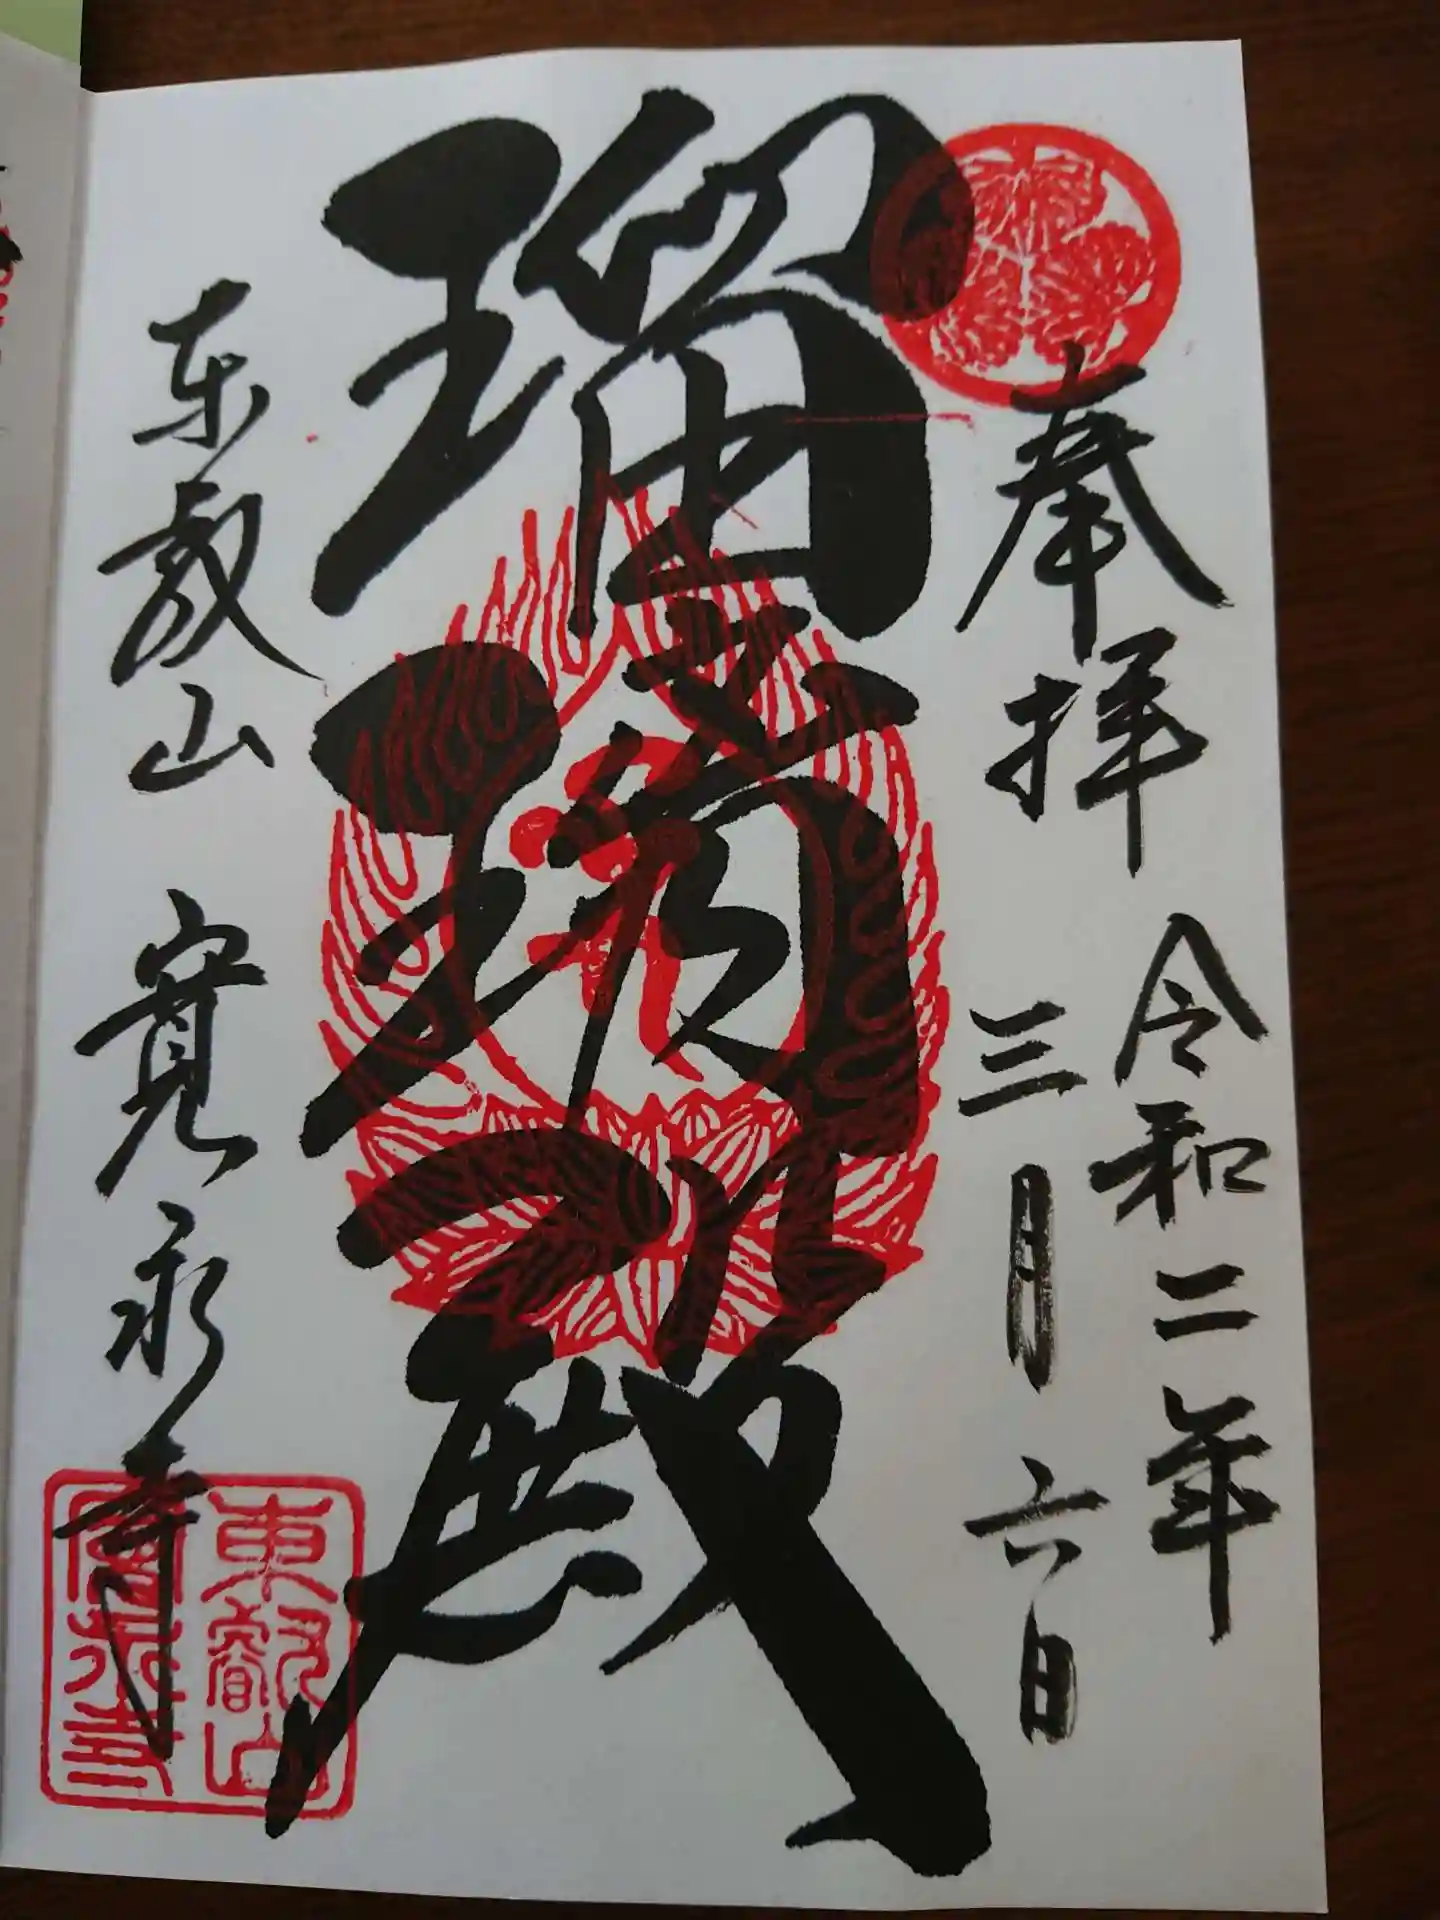 奉拝
令和二年
三月六日
瑠璃殿
東叡山 寛永寺
東叡山
寛永寺